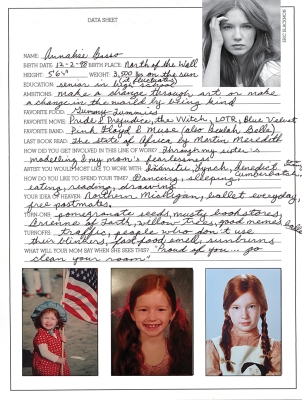 DATA SHEET
ERIC BLACKMON
NAME: Annalise Basso
BIRTH DATE: 12-2-98 BIRTH PLACE: North of the Wall
HEIGHT: 5'6¼" WEIGHT: 3,000 lbs on the sun
(it fluctuates)
EDUCATION: senior in high school
AMBITIONS: make a change through art or make
a change in the world by being kind
FAVORITE FOOD: Gummy Yummies
FAVORITE MOVIE: Pride & Prejudice, the Witch, LOTR, Blue Velvet
FAVORITE BAND: Pink Floyd & Muse (also Beulah Belle)
LAST BOOK READ: The State of Africa by Martin Meredith
HOW DID YOU GET INVOLVED IN THIS LINE OF WORK? Through my sister's
modelling & my mom's fearlessness
ARTIST YOU WOULD MOST LIKE TO WORK WITH: Iñárritu, Lynch, Benedict
Cumberbatch
HOW DO YOU LIKE TO SPEND YOUR TIME? Dancing, sleeping,
eating, reading, drawing
YOUR IDEA OF HEAVEN: Northern Michigan, ballet everyday,
free postmates.
TURN-ONS: pomegranate seeds, musty bookstores,
Arienne of Tarth, willow trees, good memes
TURNOFFS: traffic, people who don't use
their blinkers, fast food smell, sunburns
WHAT WILL YOUR MOM SAY WHEN SHE SEES THIS? "Proud of you... go
clean your room"